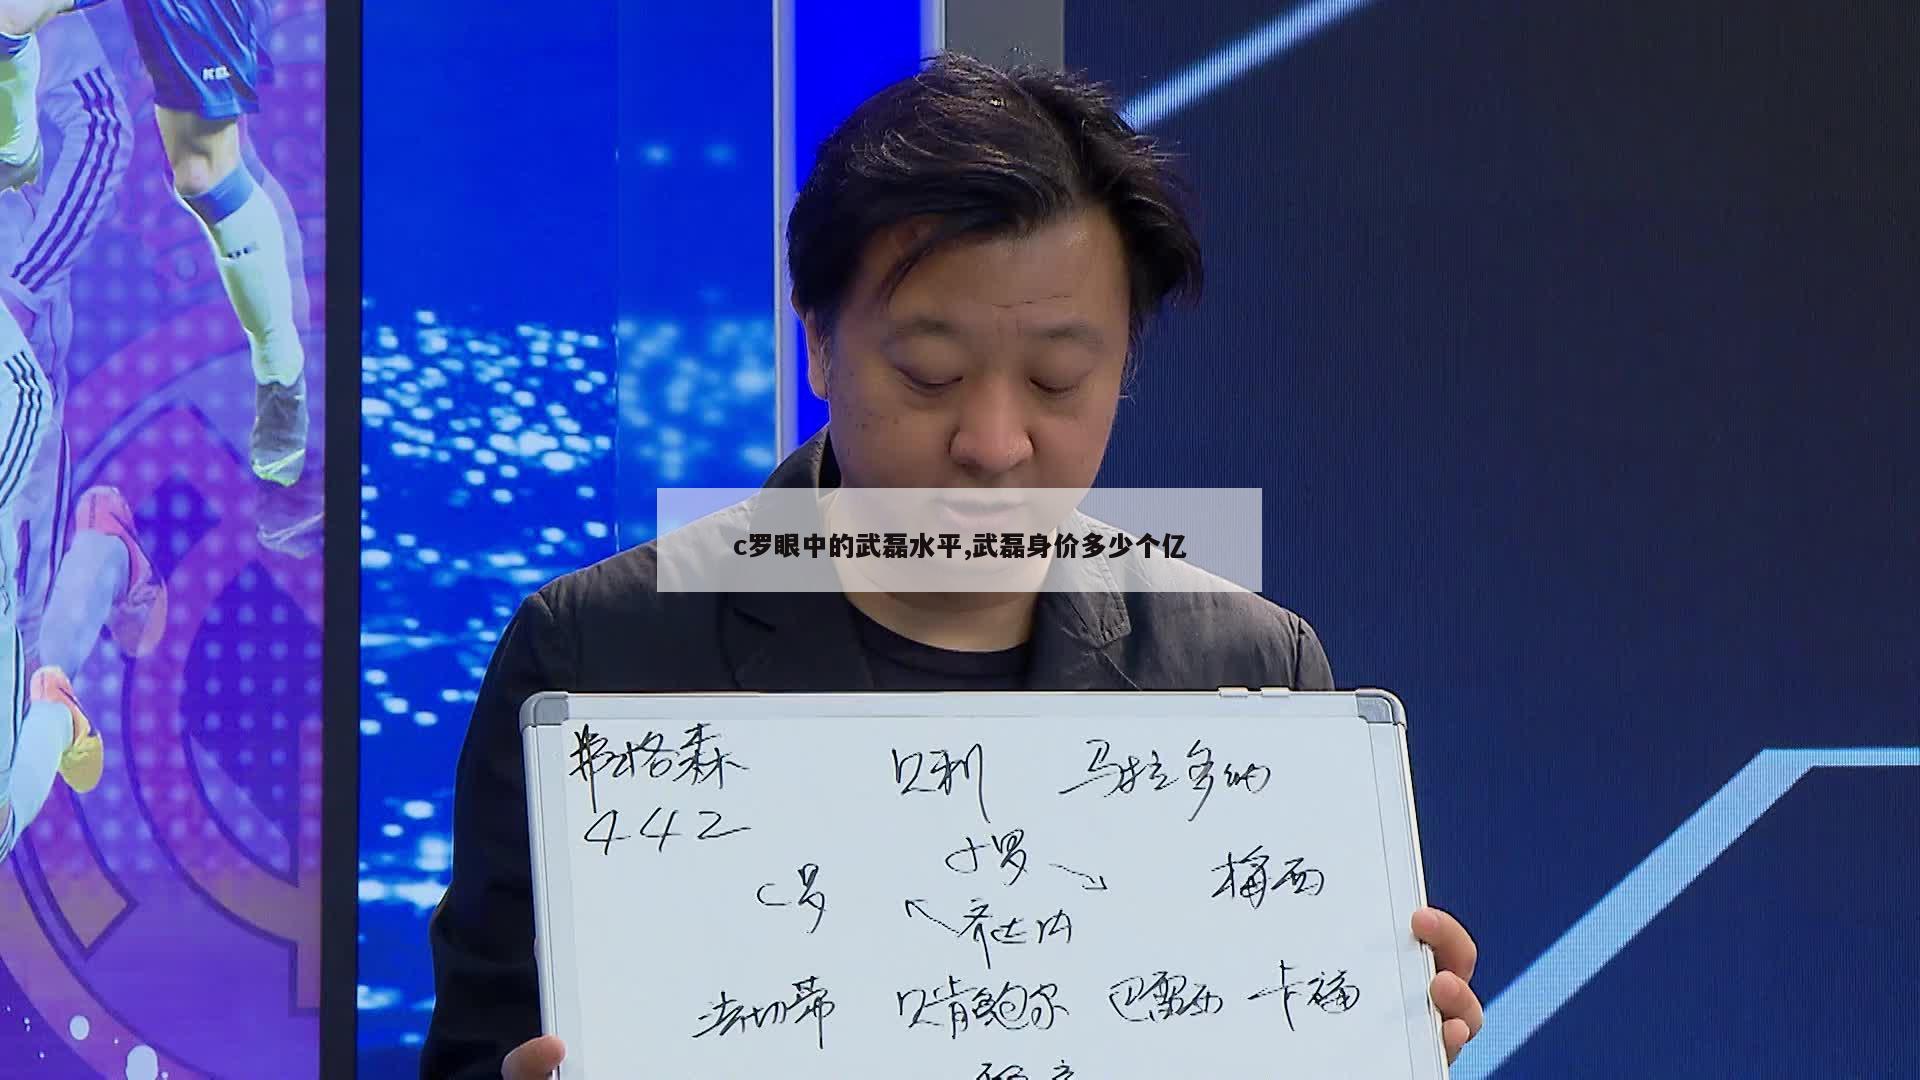 c罗眼中的武磊水平,武磊身价多少个亿
弗格森 贝利 马拉多纳
442
小罗
C罗 梅西
齐达内
法切蒂 贝肯鲍尔 巴雷西 卡福